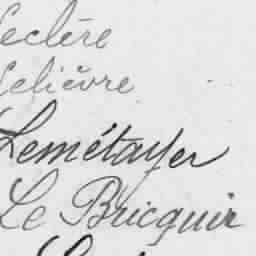 Leclère
Lelièvre
Lemétayer
Le Bricquir